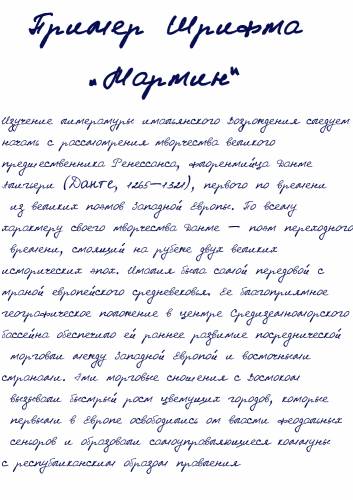 Пример Шрифта
„Мартин“
Изучение литературы итальянского Возрождения следует
начать с рассмотрения творчества великого
предшественника Ренессанса, флорентийца Данте
Алигьери (Данте, 1265—1321), первого по времени
из великих поэтов Западной Европы. По всему
характеру своего творчества Данте — поэт переходного
времени, стоящий на рубеже двух великих
исторических эпох. Италия была самой передовой с
траной европейского средневековья. Ее благоприятное
географическое положение в центре Средиземноморского
бассейна обеспечило ей раннее развитие посреднической
торговли между Западной Европой и восточными
странами. Эти торговые сношения с Востоком
вызывали быстрый рост цветущих городов, которые
первыми в Европе освободились от власти феодальных
сеньоров и образовали самоуправляющиеся коммуны
с республиканским образом правления